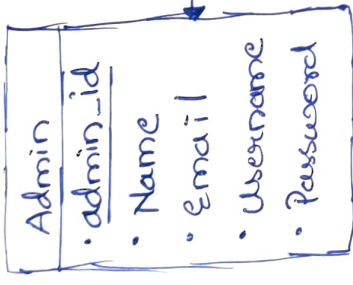 Admin
• admin_id
• Name
• Email
• Username
• Password